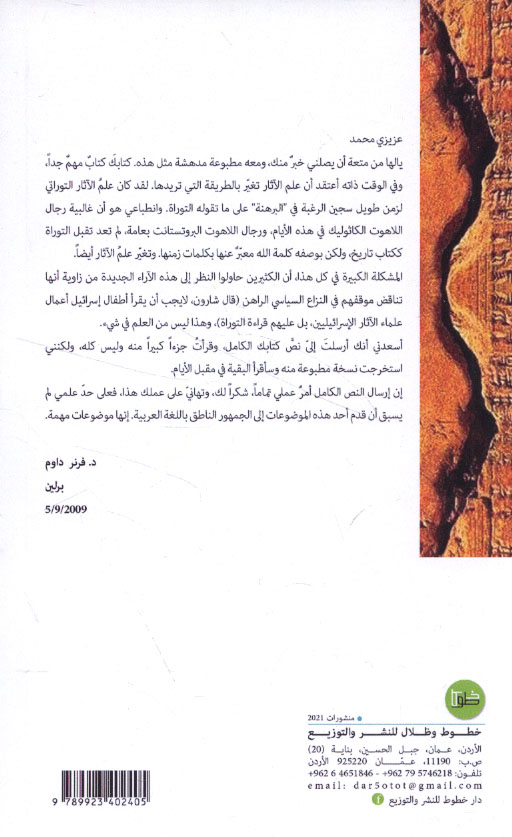 عزيزي محمد
يالها من متعة أن يصلني خبرٌ منك، ومعه مطبوعة مدهشة مثل هذه. كتابكَ كتابٌ مهمٌ جداً،
وفي الوقت ذاته أعتقد أن علم الآثار تغيّر بالطريقة التي تريدها. لقد كان علمُ الآثار التوراتي
لزمن طويل سجين الرغبة في "البرهنة" على ما تقوله التوراة. وانطباعي هو أن غالبية رجال
اللاهوت الكاثوليك في هذه الأيام، ورجال اللاهوت البروتستانت بعامة، لم تعد تقبل التوراة
ككتاب تاريخ، ولكن بوصفه كلمة الله معبّرٌ عنها بكلمات زمنها. وتغيّر علمُ الآثار أيضاً.
المشكلة الكبيرة في كل هذا، أن الكثيرين حاولوا النظر إلى هذه الآراء الجديدة من زاوية أنها
تناقض موقفهم في النزاع السياسي الراهن (قال شارون، لايجب أن يقرأ أطفال إسرائيل أعمال
علماء الآثار الإسرائيليين، بل عليهم قراءة التوراة)، وهذا ليس من العلم في شيء.
أسعدني أنك أرسلتَ إليّ نصَّ كتابك الكامل، وقرأتُ جزءاً كبيراً منه وليس كله، ولكنني
استخرجت نسخة مطبوعة منه وسأقرأ البقية في مقبل الأيام.
إن إرسال النص الكامل أمرٌ عملي تماماً، شكراً لك، وتهانيّ على عملك هذا، فعلى حدّ علمي لم
يسبق أن قدم أحد هذه الموضوعات إلى الجمهور الناطق باللغة العربية. إنها موضوعات مهمة.
د. فرنر داوم
برلين
5/9/2009
خطوط
منشورات 2021
خطـوط وظـلال للنشـر والتوزيـع
الأردن، عمـان، جبـل الحسيـن، بنايـة (20)
ص.ب: 11190، عمّـان 925220 الأردن
تلفون: 5746218 79 962+ - 4651846 6 962+
email: dar5otot@gmail.com
دار خطوط للنشر والتوزيع f
9 789923 402405